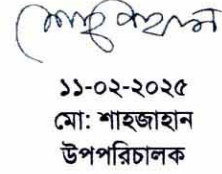 ১১-০২-২০২৫
মো: শাহজাহান
উপপরিচালক